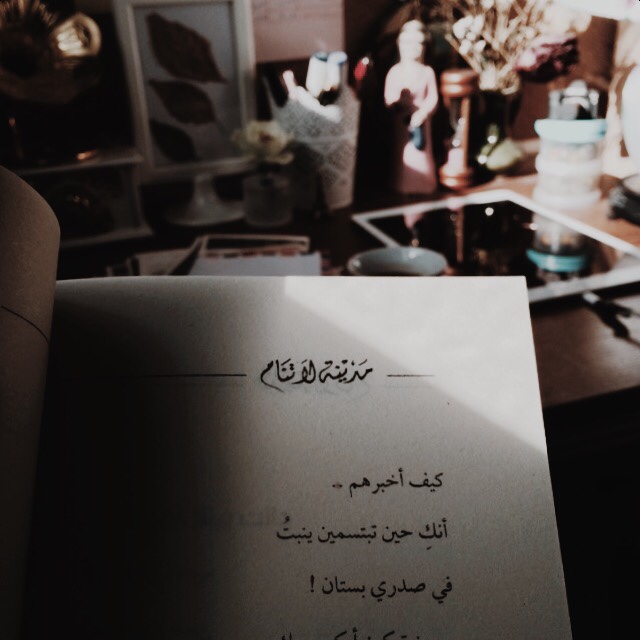 مدينة لا تنام
كيف أخبرهم ..
أنكِ حين تبتسمين ينبتُ
في صدري بستان !